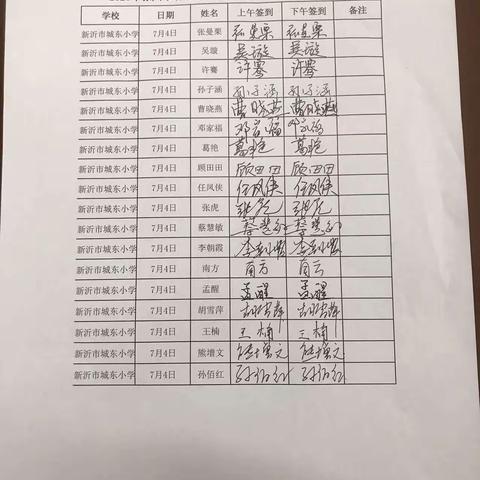 学校 日期 姓名 上午签到 下午签到 备注
新沂市城东小学 7月4日 张曼栗 张曼栗 张曼栗
新沂市城东小学 7月4日 吴璇 吴璇 吴璇
新沂市城东小学 7月4日 许骞 许骞 许骞
新沂市城东小学 7月4日 孙子涵 孙子涵 孙子涵
新沂市城东小学 7月4日 曹晓燕 曹晓燕 曹晓燕
新沂市城东小学 7月4日 邓家福 邓家福 邓家福
新沂市城东小学 7月4日 葛艳 葛艳 葛艳
新沂市城东小学 7月4日 顾田田 顾田田 顾田田
新沂市城东小学 7月4日 任凤侠 任凤侠 任凤侠
新沂市城东小学 7月4日 张虎 张虎 张虎
新沂市城东小学 7月4日 蔡慧敏 蔡慧敏 蔡慧敏
新沂市城东小学 7月4日 李朝霞 李朝霞 李朝霞
新沂市城东小学 7月4日 南方 南方 南方
新沂市城东小学 7月4日 孟醒 孟醒 孟醒
新沂市城东小学 7月4日 胡雪萍 胡雪萍 胡雪萍
新沂市城东小学 7月4日 王楠 王楠 王楠
新沂市城东小学 7月4日 熊增文 熊增文 熊增文
新沂市城东小学 7月4日 孙佰红 孙佰红 孙佰红